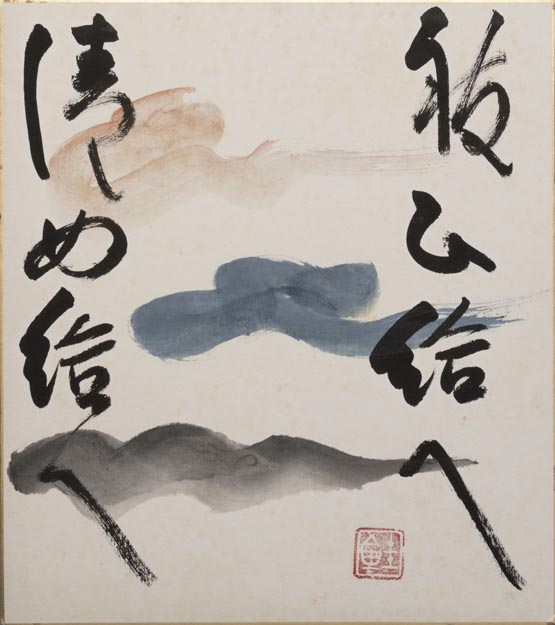 祓ひ給へ
清め給へ